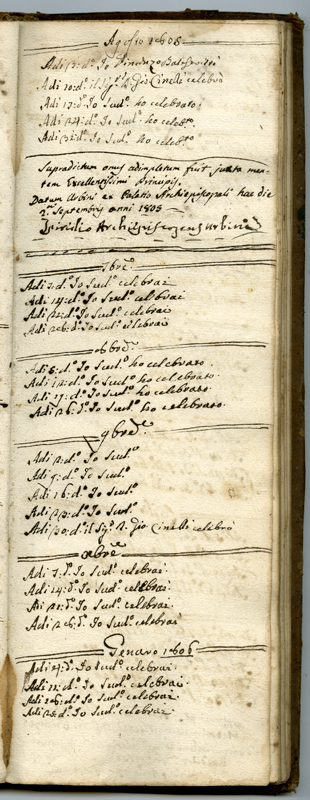 Agosto 1805
Adi 3: d:º Io Vincenzo
Adi 10: d: il Sig:r D. Gio Cinelli celebrò
Adi 17: d:º Io Sud:º ho celebrato:
Adi 24: d:º Io Sud:º ho celebr:to
Adi 31: d:º Io Sud:º ho celebr:to
Supradictum onus adimpletum fuit juxta men-
tem Excellentissimi Principis.
Datum Urbini ex Palatio Archiepiscopali hac die
2. Septembris anni 1805
Archiepiscopus Urbini
7bre
Adi 7: d:º Io Sud:º celebrai
Adi 14: d:º Io Sud:º celebrai
Adi 21: d:º Io Sud:º celebrai
Adi 28: d:º Io Sud:º celebrai
8bre
Adi 5: d:º Io Sud:º ho celebrato.
Adi 12: d:º Io Sud:º ho celebrato.
Adi 19: d:º Io Sud:º ho celebrato.
Adi 26: d:º Io Sud:º ho celebrato.
9bre
Adi 2: d:º Io Sud:º
Adi 9: d:º Io Sud:º
Adi 16: d:º Io Sud:º
Adi 23: d:º Io Sud:º
Adi 30: d:º il Sig:r D. Gio Cinelli celebrò
Xbre
Adi 7: d:º Io Sud:º celebrai.
Adi 14: d:º Io Sud:º celebrai.
Adi 21: d:º Io Sud:º celebrai.
Adi 28: d:º Io Sud:º celebrai
Genaro 1806
Adi 4: d:º Io Sud:º celebrai.
Adi 11: d:º Io Sud:º celebrai.
Adi 18: d:º Io Sud:º celebrai.
Adi 25: d:º Io Sud:º celebrai.